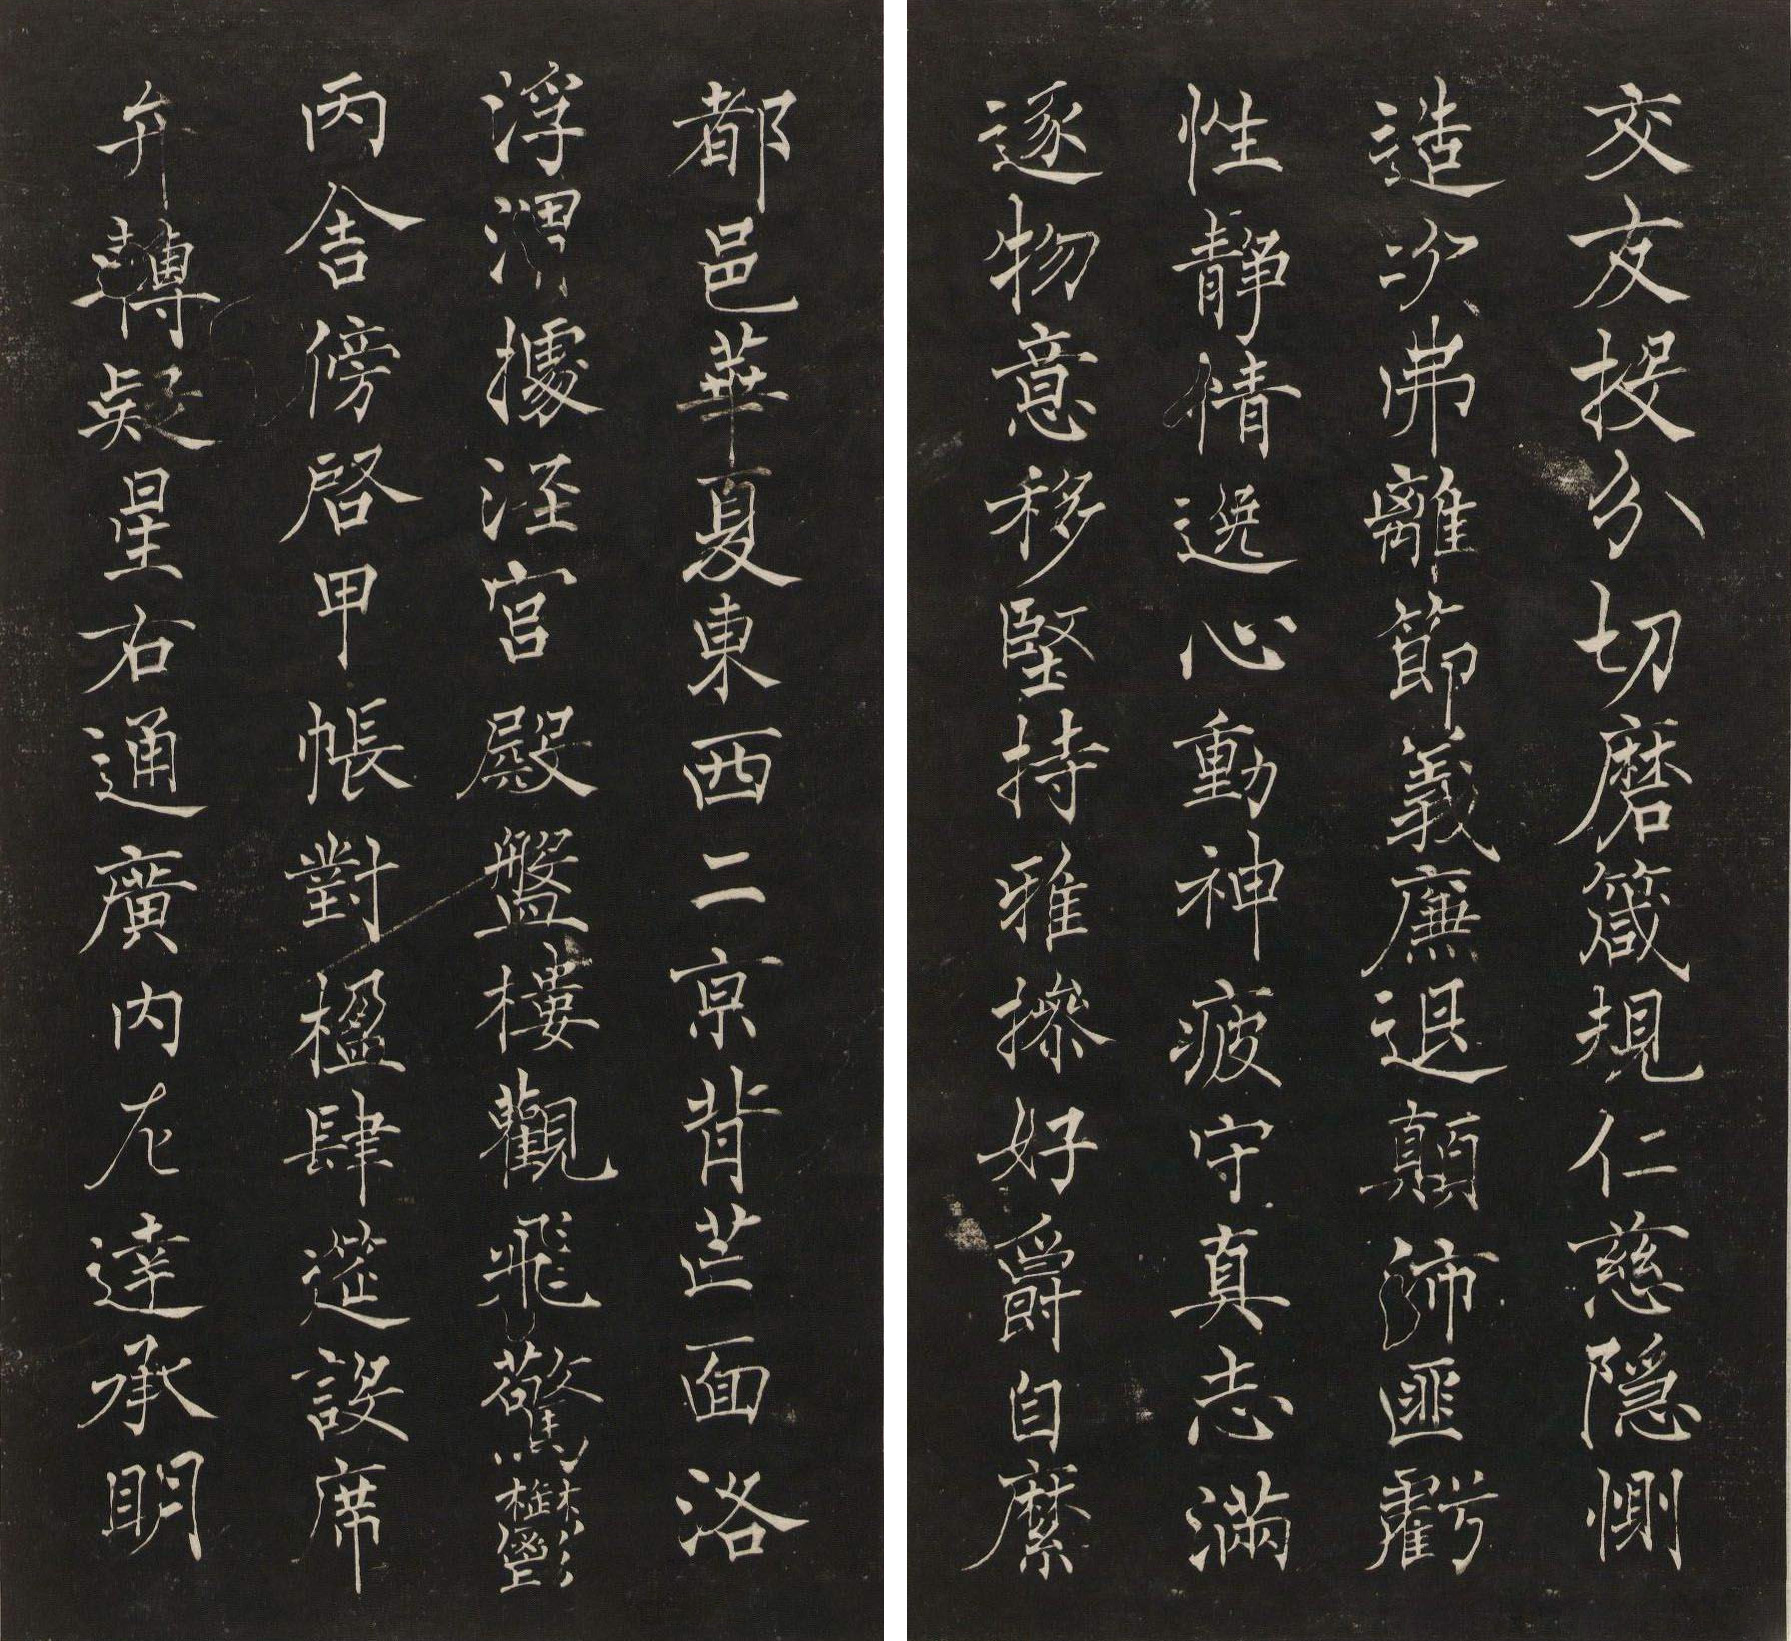 交友投分切磨箴規仁慈隱惻
造次弗離節義廉退顛沛匪虧
性靜情逸心動神疲守真志滿
逐物意移堅持雅操好爵自縻
都邑華夏東西二京背芒面洛
浮渭據涇宮殿盤樓觀飛驚鬱
丙舍傍啓甲帳對楹肆筵設席
弁轉疑星右通廣內左達承明